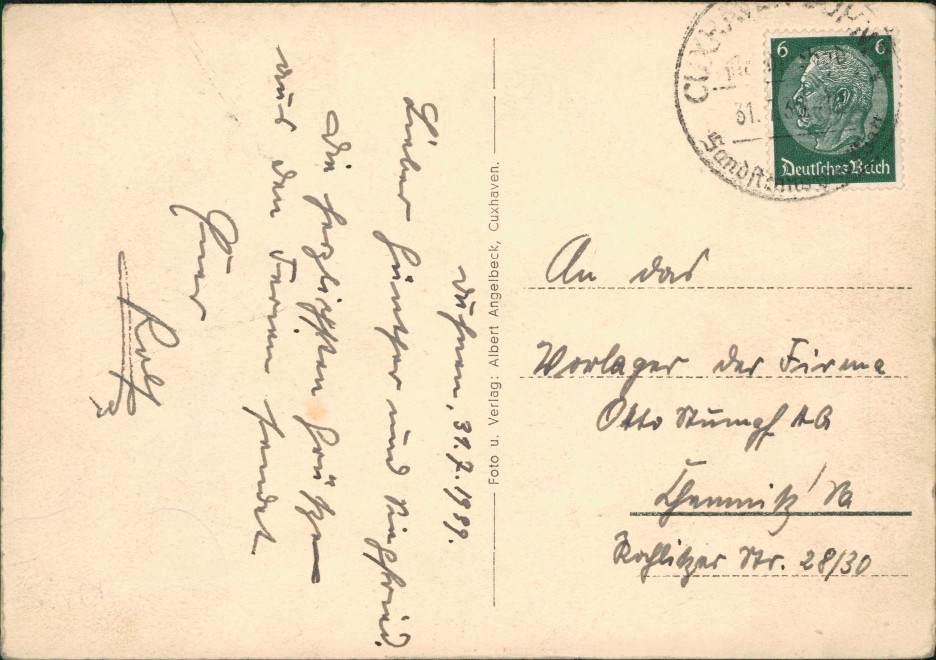 Duhnen, 31.7.1939.
Lieber Günther und Siegfried
Die herzlichsten Grüße
aus den Ferien sendet
Euer
Rolf
Foto u. Verlag: Albert Angelbeck, Cuxhaven.
CUXHAVEN-DUHNEN
31.
6 6
Deutsches Reich
An das
Vorlager der Firma
Otto Stumpf AG
Chemnitz/Sa
Rochlitzer Str. 28/30